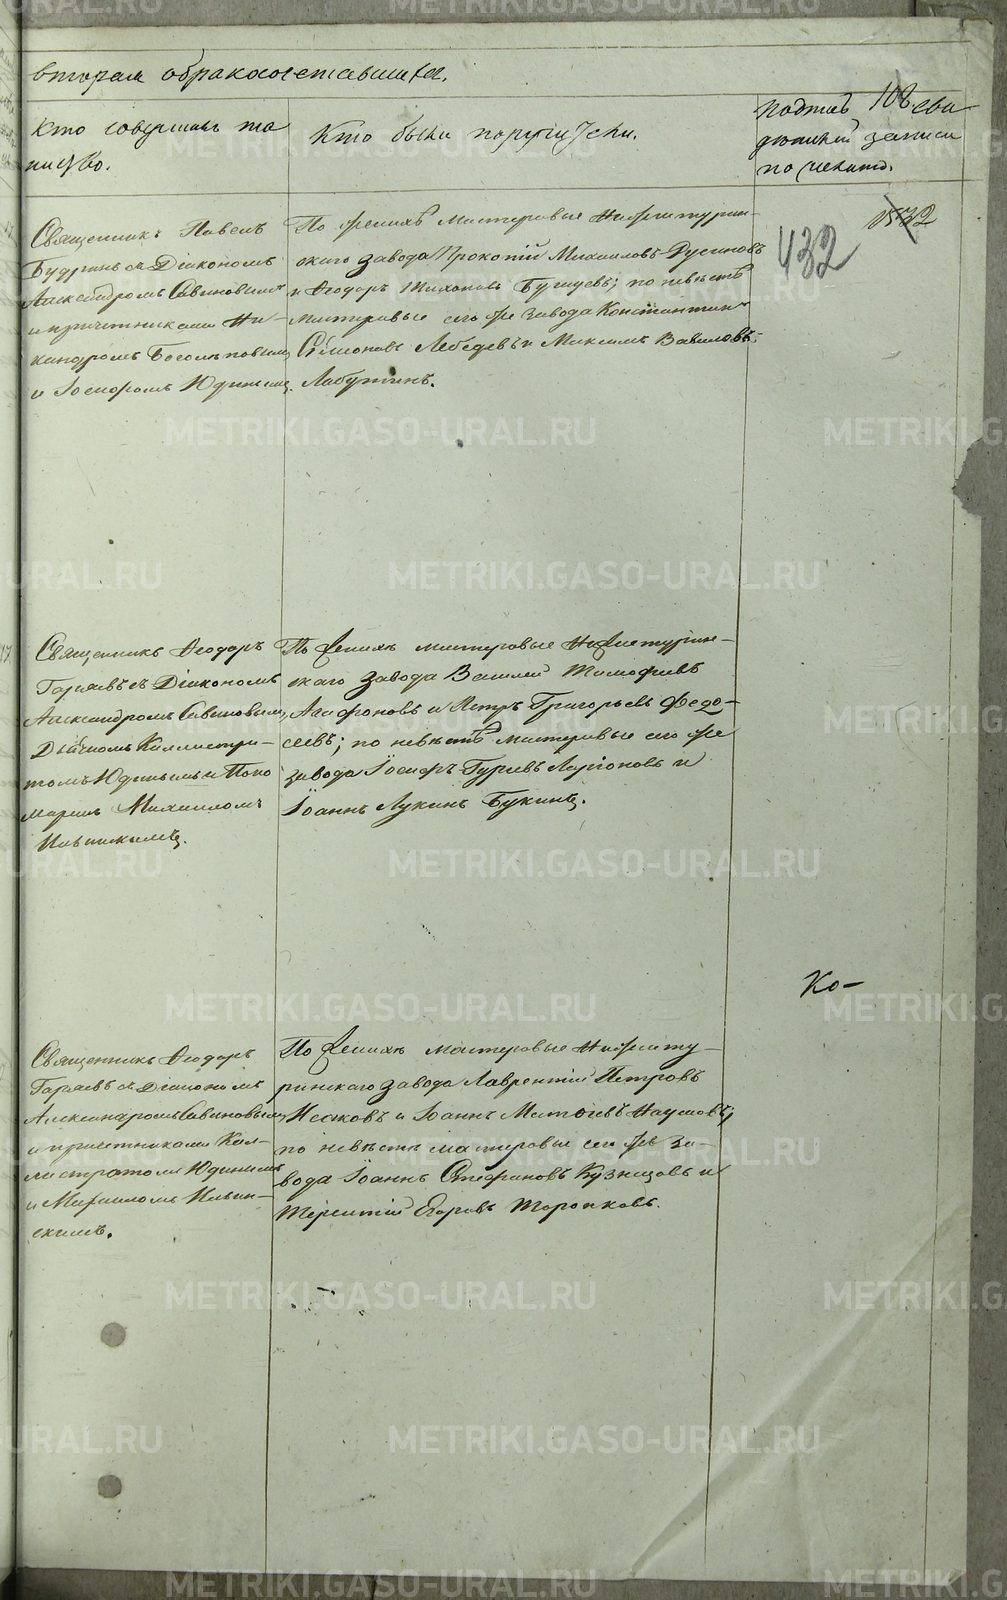 вторая о бракосочетавшихся.
Кто совершалъ та
инство.
Кто были поручители.
подпись свидетелей записи
по желанію.
108
432
Священникъ Павелъ
Будринъ съ Діакономъ
Александромъ Савиновымъ
и причетниками Ни-
кандромъ Боголеповымъ
и Іосифомъ Юдинымъ.
По женихѣ мастеровые Нижнетурин-
скаго завода Прокопій Михаиловъ Русиновъ
и Ѳеодоръ Тихоновъ Бушуевъ; по невѣстѣ
мастеровые сего же завода Константинъ
Симоновъ Лебедевъ и Максимъ Вавиловъ
Лабутинъ.
Священникъ Ѳеодоръ
Гаряевъ съ Діакономъ
Александромъ Савиновымъ,
Дьячкомъ Каллистра-
томъ Юдинымъ и Поно
маремъ Михаиломъ
Ильинскимъ.
По женихѣ мастеровые Нижнетурин-
скаго завода Василій Тимофѣевъ
Агафоновъ и Петръ Григорьевъ Федо-
сеевъ; по невѣстѣ мастеровые сего же
завода Іосифъ Гурьевъ Ларіоновъ и
Іоаннъ Лукинъ Букинъ.
Ко-
Священникъ Ѳеодоръ
Гаряевъ съ Діакономъ
Александромъ Савиновымъ
и причетниками Кал-
листратомъ Юдинымъ
и Михаиломъ Ильин-
скимъ.
По женихѣ мастеровые Нижнету-
ринскаго завода Лаврентій Петровъ
и Іоаннъ Матѳеевъ Наумовъ;
по невѣстѣ мастеровые сего же за-
вода Іоаннъ Стефановъ Кузнецовъ и
Терентій Егоровъ Торопковъ.
METRIKI.GASO-URAL.RU